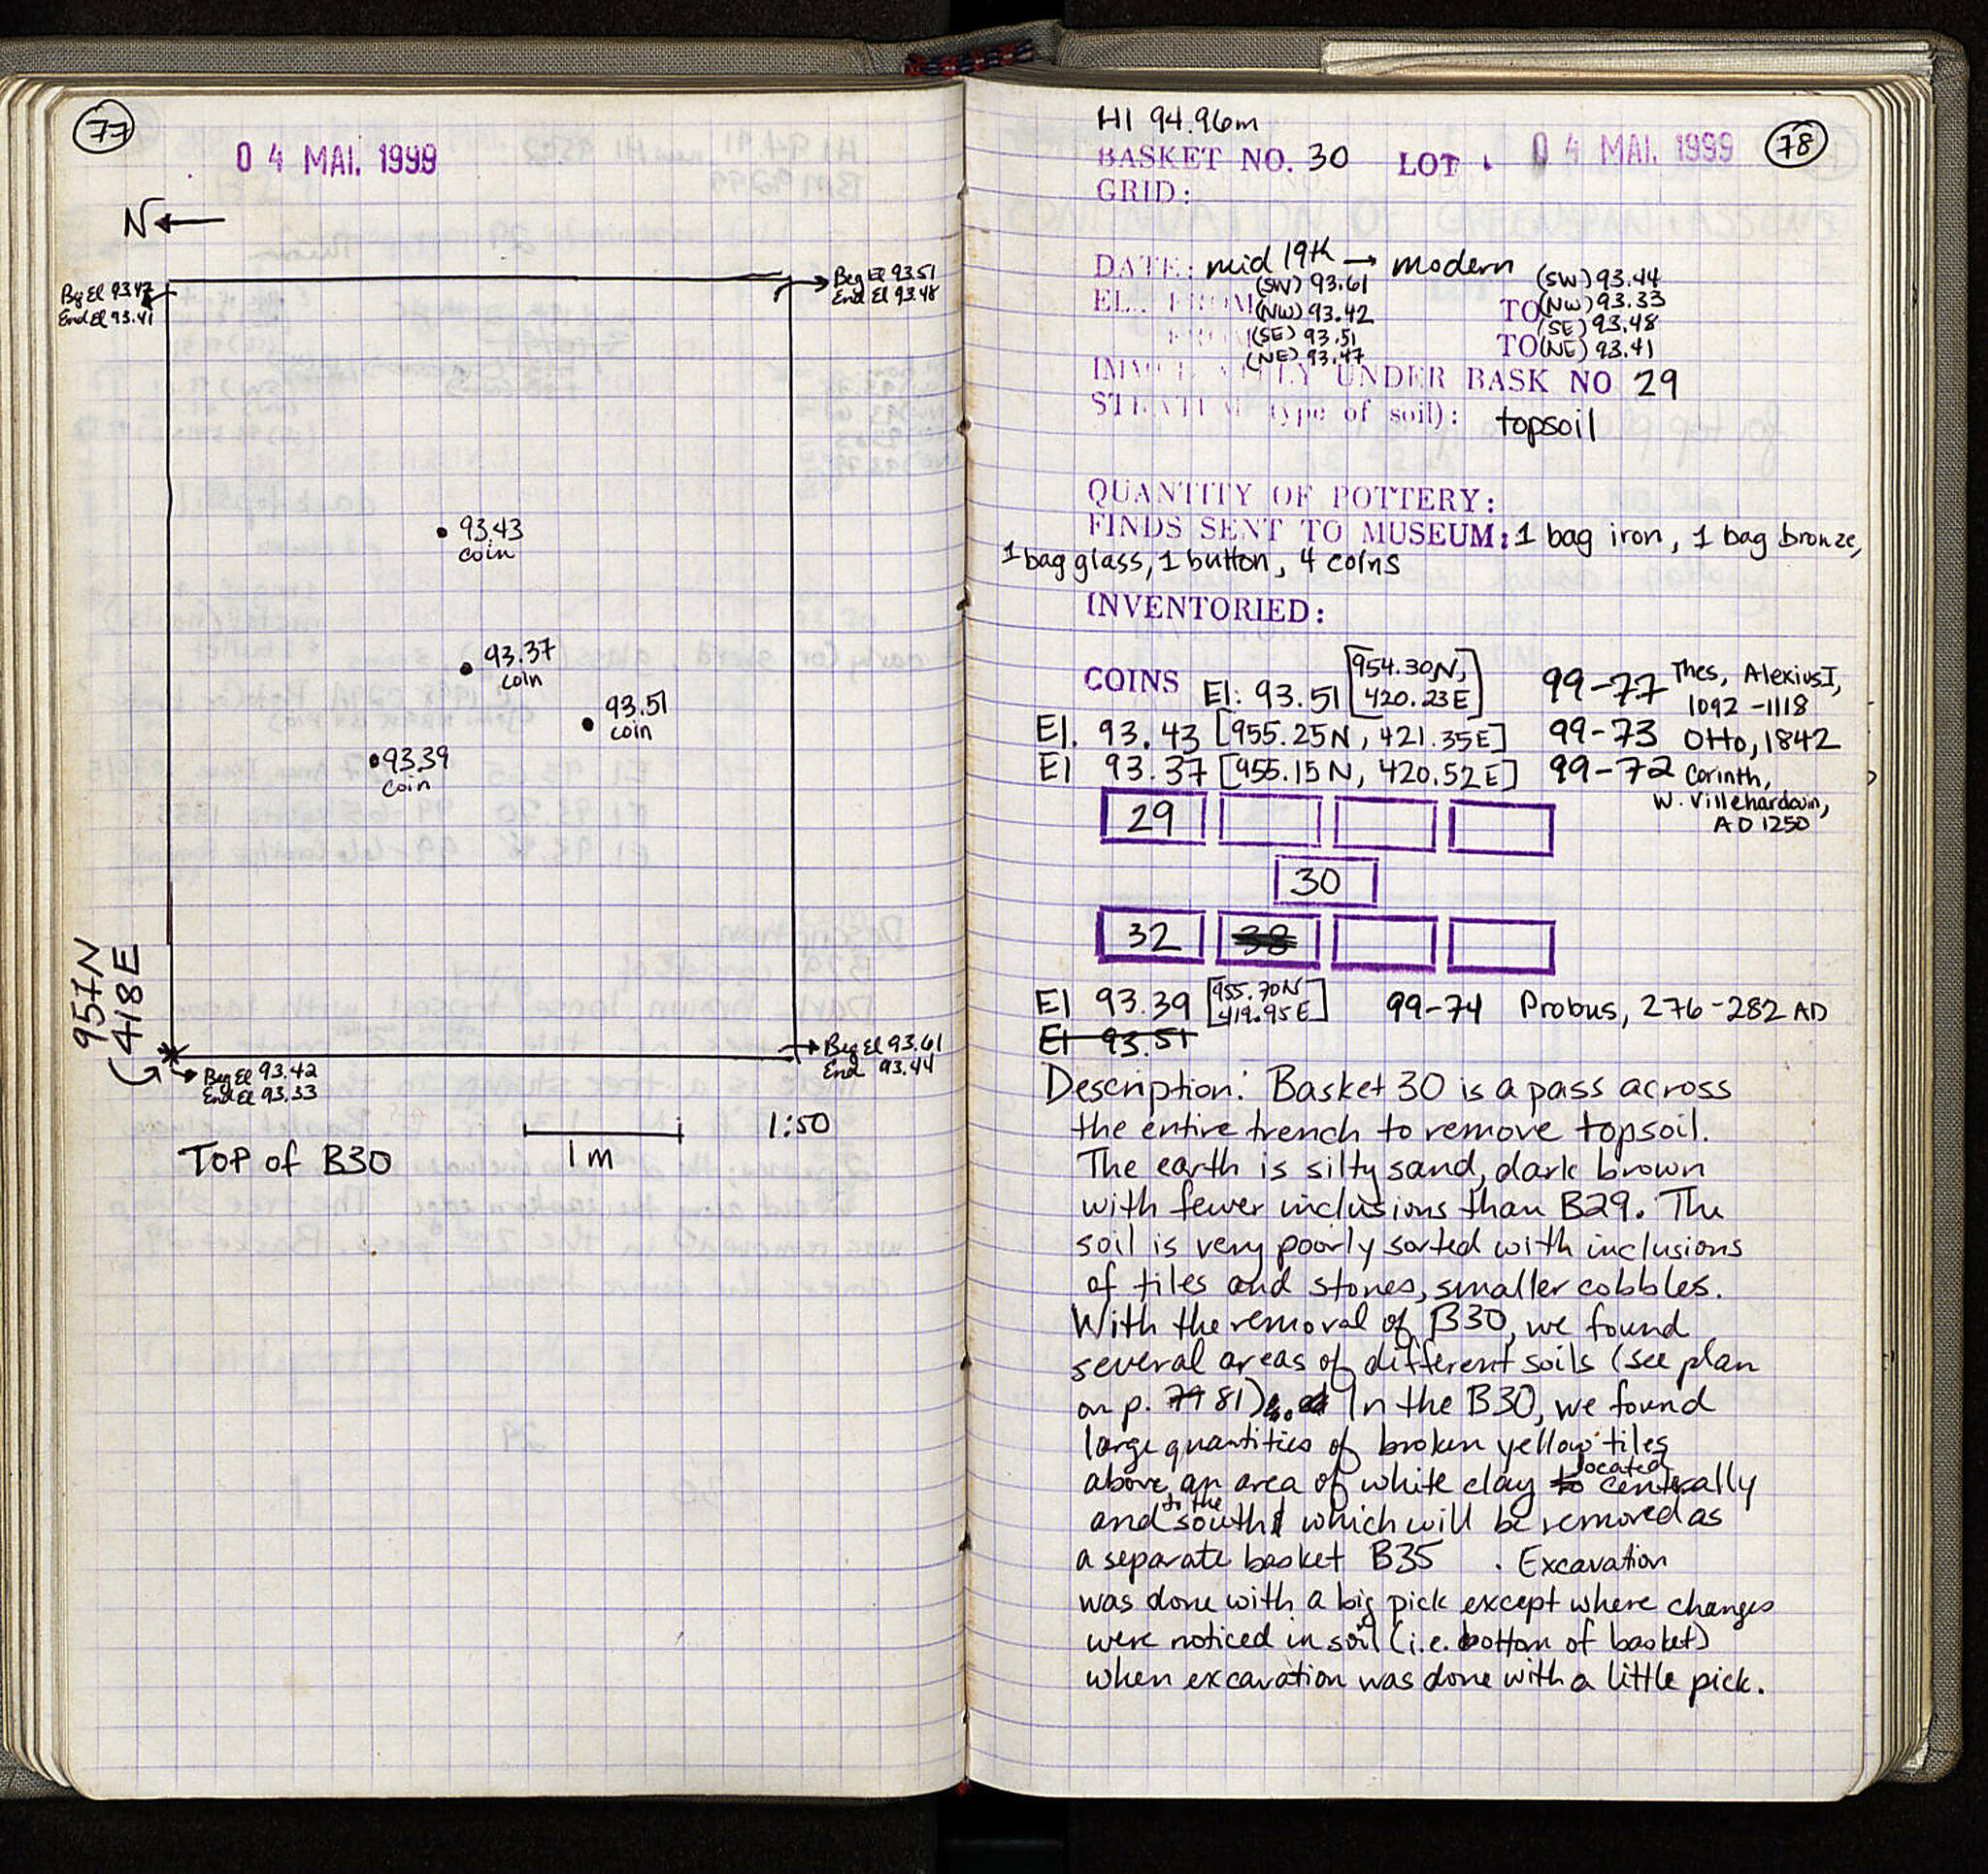 77
04 MAI. 1999
N
Beg El 93.47
End El 93.41
Beg El 93.51
End El 93.48
93.43
coin
93.37
coin
93.51
coin
93.39
coin
957N
418E
Beg El 93.42
End El 93.33
Beg El 93.61
End 93.44
1m
1:50
Top of B30
HI 94.96m
BASKET NO. 30 LOT 04 MAI. 1999
78
GRID:
DATE: mid 19th → modern
EL. FROM (SW) 93.61 TO (SW) 93.44
(NW) 93.42 (NW) 93.33
FROM (SE) 93.51 TO (SE) 93.48
(NE) 93.47 (NE) 93.41
IMMEDIATELY UNDER BASK NO 29
STRATUM (type of soil): topsoil
QUANTITY OF POTTERY:
FINDS SENT TO MUSEUM: 1 bag iron, 1 bag bronze,
1 bag glass, 1 button, 4 coins
INVENTORIED:
COINS El: 93.51 [954.30N, 420.23E] 99-77 Thes, Alexius I, 1092-1118
El. 93.43 [955.25N, 421.35E] 99-73 Otto, 1842
El 93.37 [955.15N, 420.52E] 99-72 Corinth,
W. Villehardouin,
AD 1250
29
30
32 38
El 93.39 [955.70N 419.95E] 99-74 Probus, 276-282 AD
El 93.51
Description: Basket 30 is a pass across
the entire trench to remove topsoil.
The earth is silty sand, dark brown
with fewer inclusions than B29. The
soil is very poorly sorted with inclusions
of tiles and stones, smaller cobbles.
With the removal of B30, we found
several areas of different soils (see plan
on p. 79 81). In the B30, we found
large quantities of broken yellow tiles
above an area of white clay to located centrally
and to the south which will be removed as
a separate basket B35. Excavation
was done with a big pick except where changes
were noticed in soil (i.e. bottom of basket)
when excavation was done with a little pick.